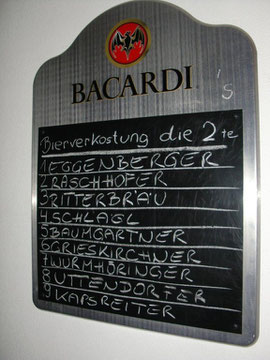 BACARDI
's
Bierverkostung die 2te
1 EGGENBERGER
2 RASCHHOFER
3 RITTERBRÄU
4 SCHLÄGL
5 BAUMGARTNER
6 GRIESKIRCHNER
7 WURMHÖRINGER
8 UTTENDORFER
9 KAPSREITER